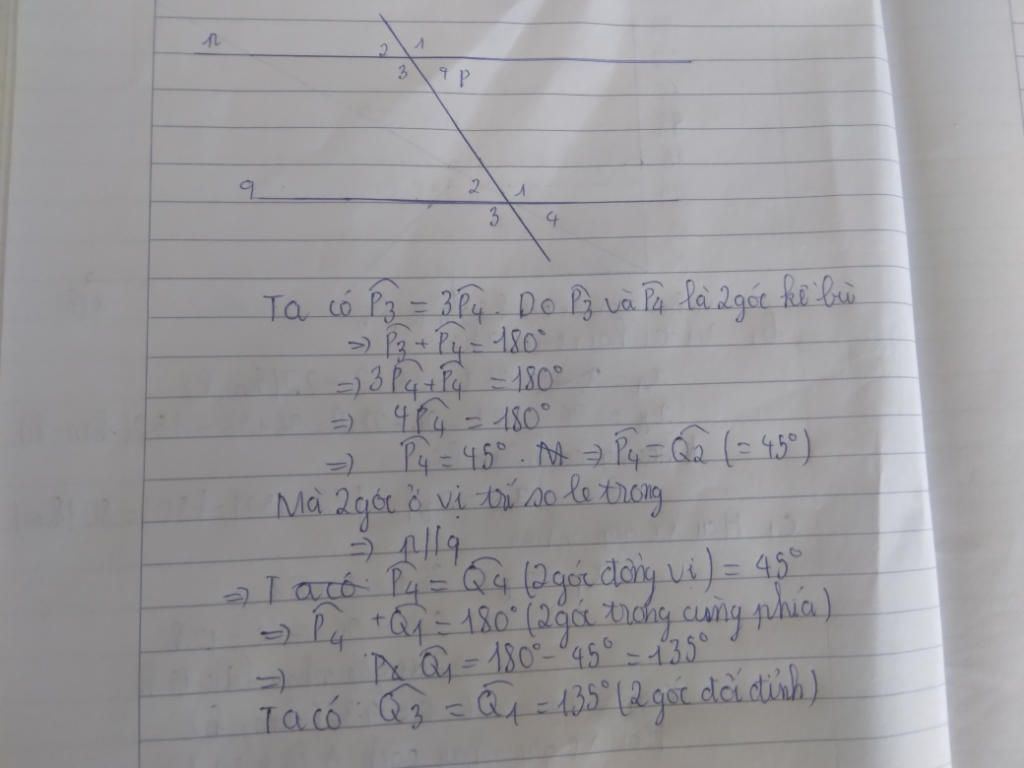 p
2 1
3 4 P
q
2 1
3 4
Ta có P̂3 = 3P̂4. Do P̂3 và P̂4 là 2 góc kề bù
=> P̂3 + P̂4 = 180°
=> 3P̂4 + P̂4 = 180°
=> 4P̂4 = 180°
=> P̂4 = 45°. => P̂4 = Q̂2 (= 45°)
Mà 2 góc ở vị trí so le trong
=> p//q
=> Ta có P̂4 = Q̂4 (2 góc đồng vị) = 45°
=> P̂4 + Q̂1 = 180° (2 góc trong cùng phía)
=> Q̂1 = 180° - 45° = 135°
Ta có Q̂3 = Q̂1 = 135° (2 góc đối đỉnh)